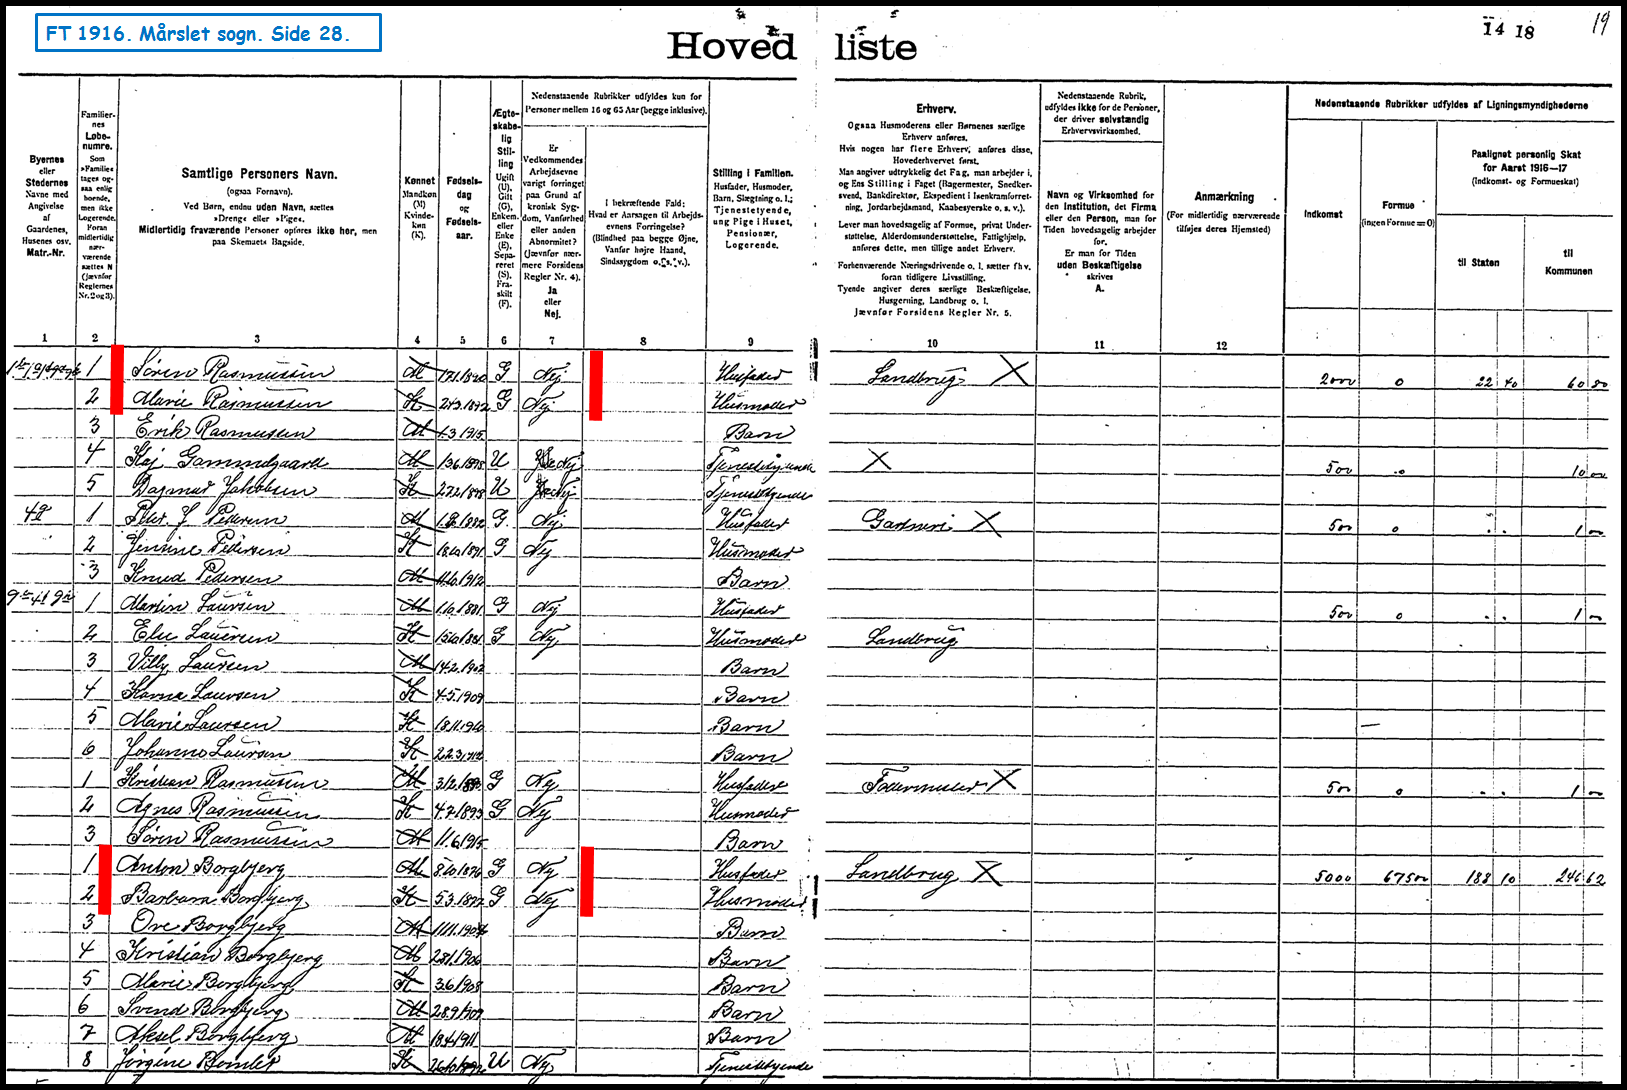 FT 1916. Mårslet sogn. Side 28.
Hovedliste
14 18
19
Byernes
eller
Stedernes
Navne med
Angivelse
af
Gaardenes,
Husenes osv.
Matr.-Nr.
Familier-
nes
Løbe-
numre.
Som
»Familie«
tages og-
saa enlig
boende,
men ikke
Logerende.
Foran
midlertidig
nær-
værende
sættes N
(jævnfør
Reglernes
Nr. 2 og 3).
Samtlige Personers Navn.
(ogsaa Fornavn).
Ved Børn, endnu uden Navn, sættes
»Dreng« eller »Pige«.
Midlertidig fraværende Personer opføres ikke her, men
paa Skemaets Bagside.
Kønnet
Mandkøn
(M)
Kvinde-
køn
(K).
Fødsels-
dag
og
Fødsels-
aar.
Ægte-
skabe-
lig
Stil-
ling
Ugift
(U),
Gift
(G),
Enkem.
eller
Enke
(E),
Sepa-
reret
(S),
Fra-
skilt
(F).
Nedenstaaende Rubrikker udfyldes kun for
Personer mellem 16 og 65 Aar (begge inklusive).
Er
Vedkommendes
Arbejdsevne
varigt forringet
paa Grund af
kronisk Syg-
dom, Vanførhed
eller anden
Abnormitet?
(Jævnfør nær-
mere Forsidens
Regler Nr. 4).
Ja
eller
Nej.
I bekræftende Fald:
Hvad er Aarsagen til Arbejds-
evnens Forringelse?
(Blindhed paa begge Øjne,
Vanfør højre Haand,
Sindssygdom o. s. v.).
Stilling i Familien.
Husfader, Husmoder,
Barn, Slægtning o. l.;
Tjenestetyende,
ung Pige i Huset,
Pensionær,
Logerende.
Erhverv.
Ogsaa Husmoderens eller Børnenes særlige
Erhverv anføres.
Hvis nogen har flere Erhverv, anføres disse,
Hovederhvervet først.
Man angiver udtrykkelig det Fag, man arbejder i,
og Ens Stilling i Faget (Bagermester, Snedker-
svend, Bankdirektør, Ekspedient i Isenkramforret-
ning, Jordarbejdsmand, Kaabesyerske o. s. v.).
Lever man hovedsagelig af Formue, privat Under-
støttelse, Alderdomsunderstøttelse, Fattighjælp,
anføres dette, men tillige andet Erhverv.
Forhenværende Næringsdrivende o. l. sætter fhv.
foran tidligere Livsstilling.
Tyende angiver deres særlige Beskæftigelse,
Husgerning, Landbrug o. l.
Jævnfør Forsidens Regler Nr. 5.
Nedenstaaende Rubrik,
udfyldes ikke for de Personer,
der driver selvstændig
Erhvervsvirksomhed.
Navn og Virksomhed for
den Institution, det Firma
eller den Person, man for
Tiden hovedsagelig arbejder
for.
Er man for Tiden
uden Beskæftigelse
skrives
A.
Anmærkning
(For midlertidig nærværende
tilføjes deres Hjemsted)
Nedenstaaende Rubrikker udfyldes af Ligningsmyndighederne
Indkomst
Formue
(ingen Formue = 0)
Paalignet personlig Skat
for Aaret 1916—17
(Indkomst- og Formueskat)
til Staten
til
Kommunen
1 2 3 4 5 6 7 8 9 10 11 12
1 Søren Rasmussen M G Nej Husfader Landbrug X 2000 0 22 40 60 80
2 Marie Rasmussen K G Nej Husmoder
3 Erik Rasmussen M 1.3.1915 Barn
4 Kaj Gammelgaard M U Nej Tjenestetyende X 500 0 10 00
5 Dagmar Jakobsen K U Nej Tjenestetyende
1 Peter J Pedersen M G. Nej Husfader Gartneri X 500 0 1 00
2 Jensine Pedersen K G Nej Husmoder
3 Knud Pedersen M Barn
1 Martin Laursen M G Nej Husfader 500 0 1 00
2 Else Laursen K G Nej Husmoder Landbrug
3 Villy Laursen M 14.2.1902 Barn
4 Karna Laursen K 4.5.1909 Barn
5 Marie Laursen K 18.11.1910 Barn
6 Johanne Laursen K Barn
1 Kristian Rasmussen M G Nej Husfader Fodermester X 500 0 1 00
2 Agnes Rasmussen K G Nej Husmoder
3 Søren Rasmussen M 11.6.1915 Barn
1 Anton Borgbjerg M 8.10.1876 G Nej Husfader Landbrug X 5000 67500 188 10 246 62
2 Barbara Borgbjerg K G Nej Husmoder
3 Ove Borgbjerg M Barn
4 Kristian Borgbjerg M 28.1.1906 Barn
5 Marie Borgbjerg K 3.6.1908 Barn
6 Svend Borgbjerg M 28.9.1909 Barn
7 Aksel Borgbjerg M 18.4.1911 Barn
8 Jørgine K U Nej Tjenestetyende